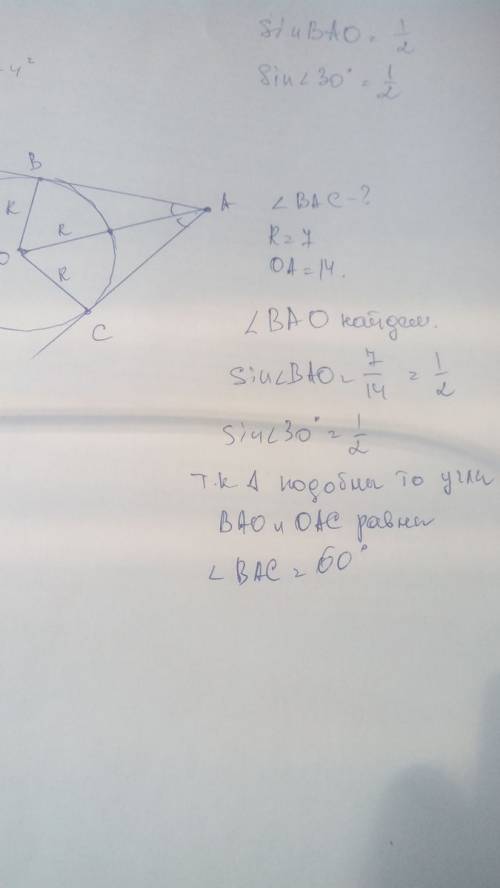 SinBAO = 1/2
Sin∠30° = 1/2
- 4²
B
R
A
R
O
R
C
∠BAC - ?
R = 7
OA = 14.
∠BAO найдем.
Sin∠BAO = 7/14 = 1/2
Sin∠30° = 1/2
т.к Δ подобны то углы
BAO и OAC равны
∠BAC = 60°